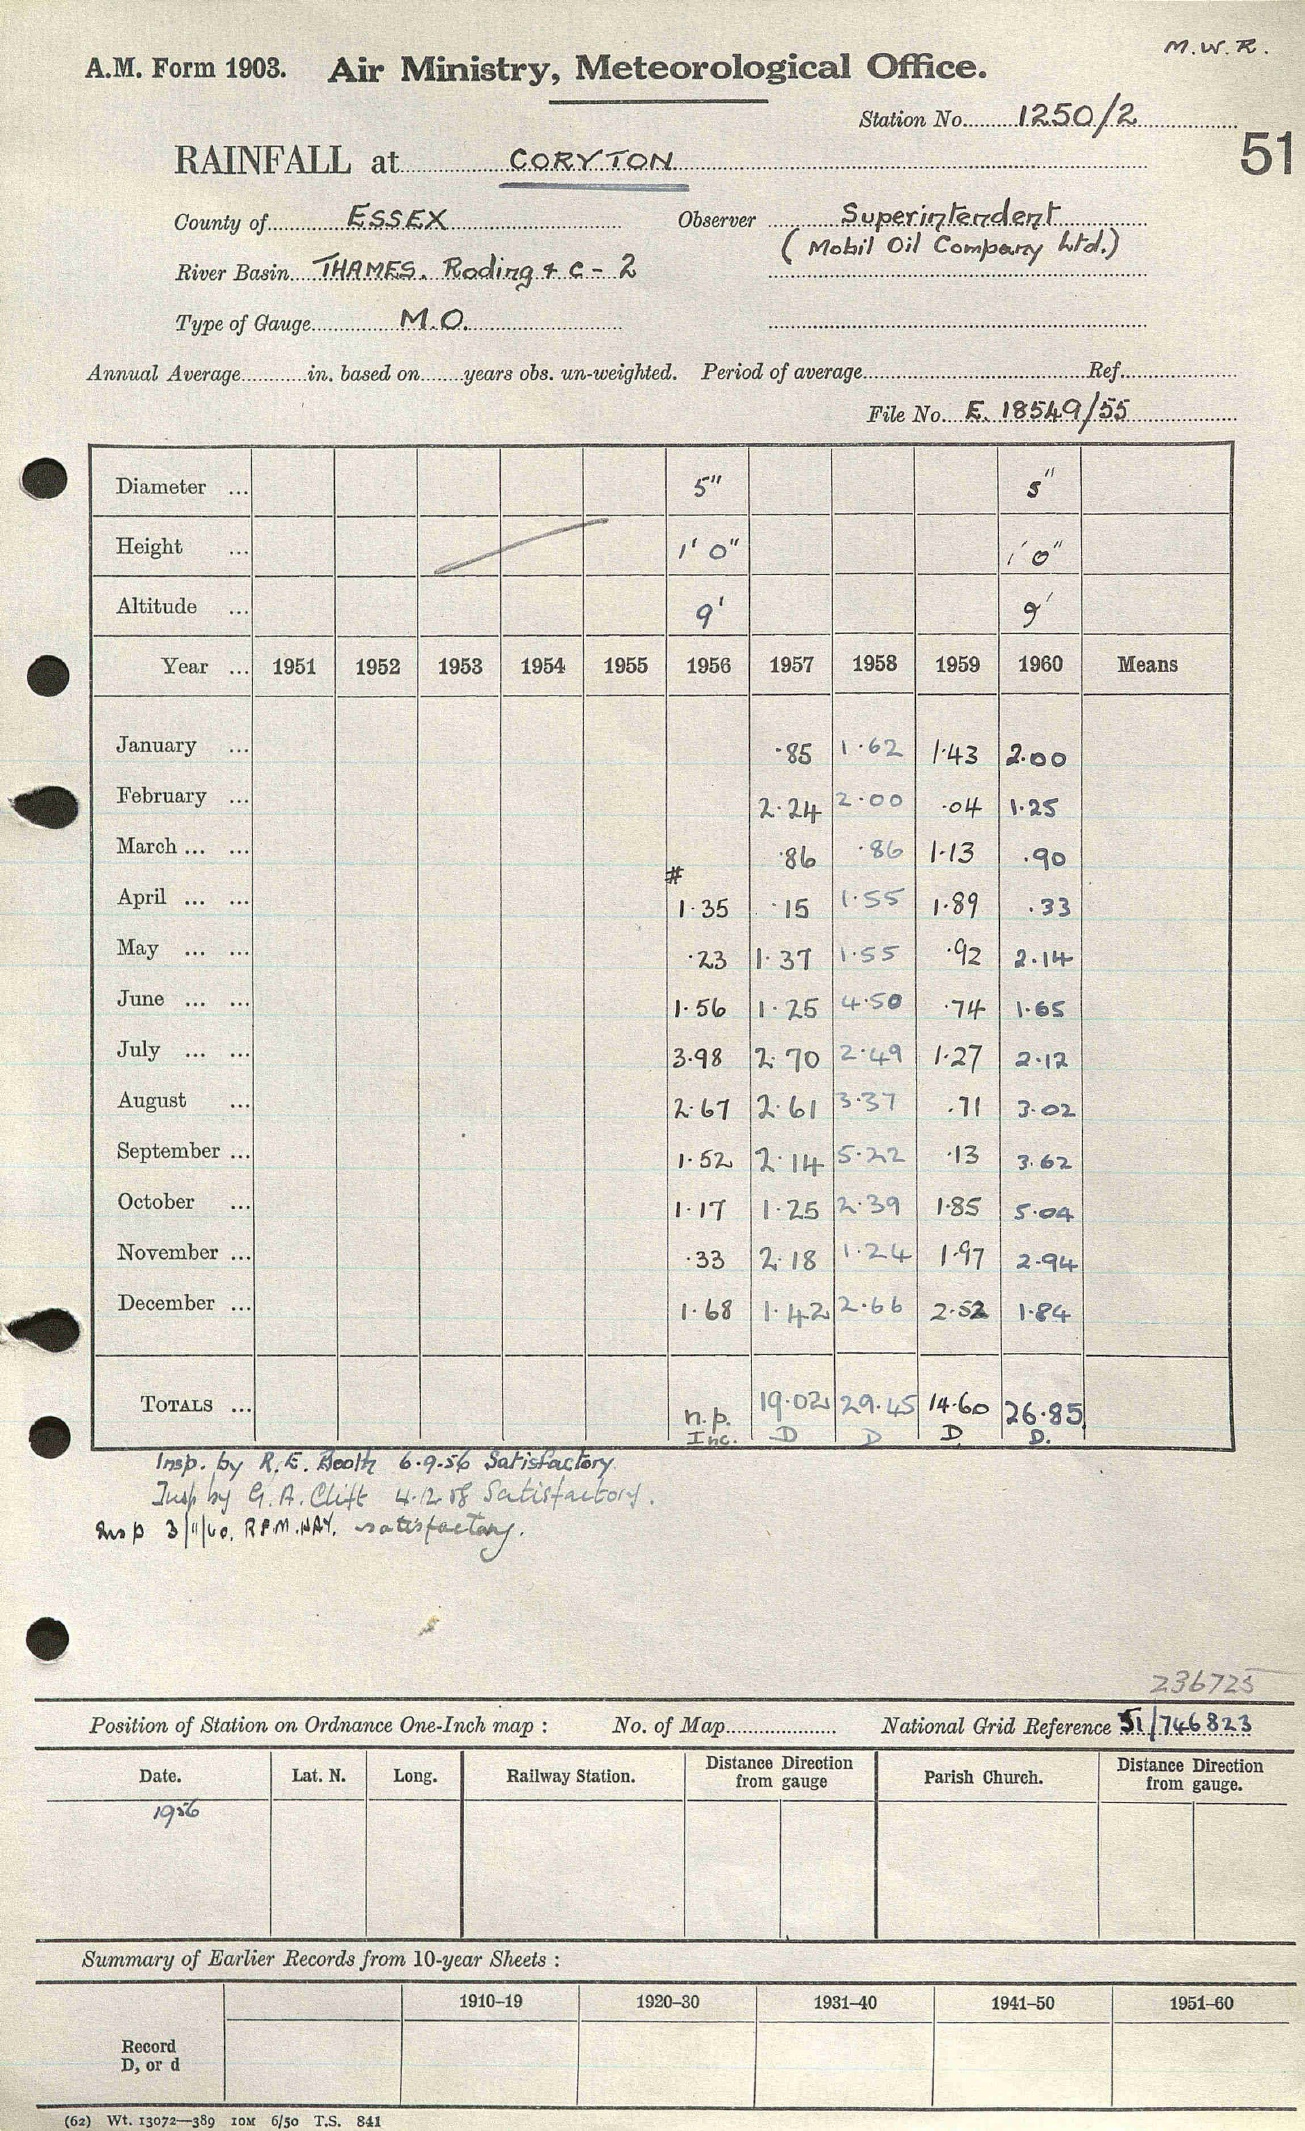 M.W.R.
A.M. Form 1903. Air Ministry, Meteorological Office.
Station No. 1250/2
51
RAINFALL at CORYTON
County of ESSEX Observer Superintendent
(Mobil Oil Company Ltd.)
River Basin THAMES. Roding & c - 2
Type of Gauge M.O.
Annual Average in. based on years obs. un-weighted. Period of average Ref.
File No. E. 18549/55
Diameter ... 5" 5"
Height ... 1' 0" 1' 0"
Altitude ... 9' 9'
Year ... 1951 1952 1953 1954 1955 1956 1957 1958 1959 1960 Means
January ... ·85 1·62 1·43 2·00
February ... 2·24 2·00 ·04 1·25
March ... ... ·86 ·86 1·13 ·90
#
April ... ... 1·35 ·15 1·55 1·89 ·33
May ... ... ·23 1·37 1·55 ·92 2·14
June ... ... 1·56 1·25 4·50 ·74 1·65
July ... ... 3·98 2·70 2·49 1·27 2·12
August ... 2·67 2·61 3·37 ·71 3·02
September ... 1·52 2·14 5·22 ·13 3·62
October ... 1·17 1·25 2·39 1·85 5·04
November ... ·33 2·18 1·24 1·97 2·94
December ... 1·68 1·42 2·66 2·52 1·84
TOTALS ... n.p. 19·02 29·45 14·60 26·85
Inc. D D D D.
Insp. by R. E. Booth 6·9·56 Satisfactory.
Insp by G. A. Clift 4·12·58 Satisfactory.
Insp 3/11/60. R.P.M. HAY. satisfactory.
236725
Position of Station on Ordnance One-Inch map : No. of Map National Grid Reference 51/746823
Date. Lat. N. Long. Railway Station. Distance Direction from gauge Parish Church. Distance Direction from gauge.
1956
Summary of Earlier Records from 10-year Sheets :
1910–19 1920–30 1931–40 1941–50 1951–60
Record
D, or d
(62) Wt. 13072—389 10M 6/50 T.S. 841